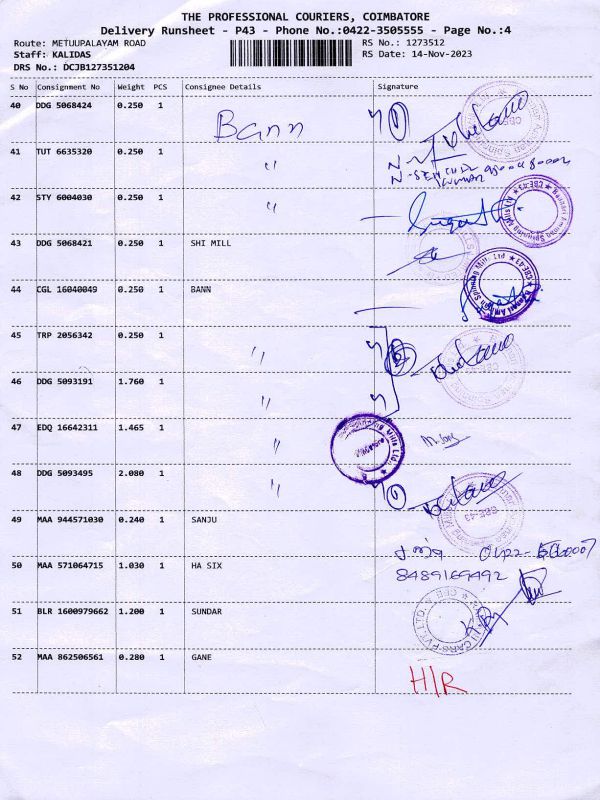 THE PROFESSIONAL COURIERS, COIMBATORE
Delivery Runsheet - P43 - Phone No.:0422-3505555 - Page No.:4
Route: METUUPALAYAM ROAD
Staff: KALIDAS
DRS No.: DCJB127351204
RS No.: 1273512
RS Date: 14-Nov-2023
S No Consignment No Weight PCS Consignee Details Signature
40 DDG 5068424 0.250 1 Bann
41 TUT 6635320 0.250 1 "
42 STY 6004030 0.250 1 "
43 DDG 5068421 0.250 1 SHI MILL
44 CGL 16040049 0.250 1 BANN
45 TRP 2056342 0.250 1 "
46 DDG 5093191 1.760 1 "
47 EDQ 16642311 1.465 1 "
48 DDG 5093495 2.080 1 "
49 MAA 944571030 0.240 1 SANJU
50 MAA 571064715 1.030 1 HA SIX 8489169492
51 BLR 1600979662 1.200 1 SUNDAR
52 MAA 862506561 0.280 1 GANE H/R